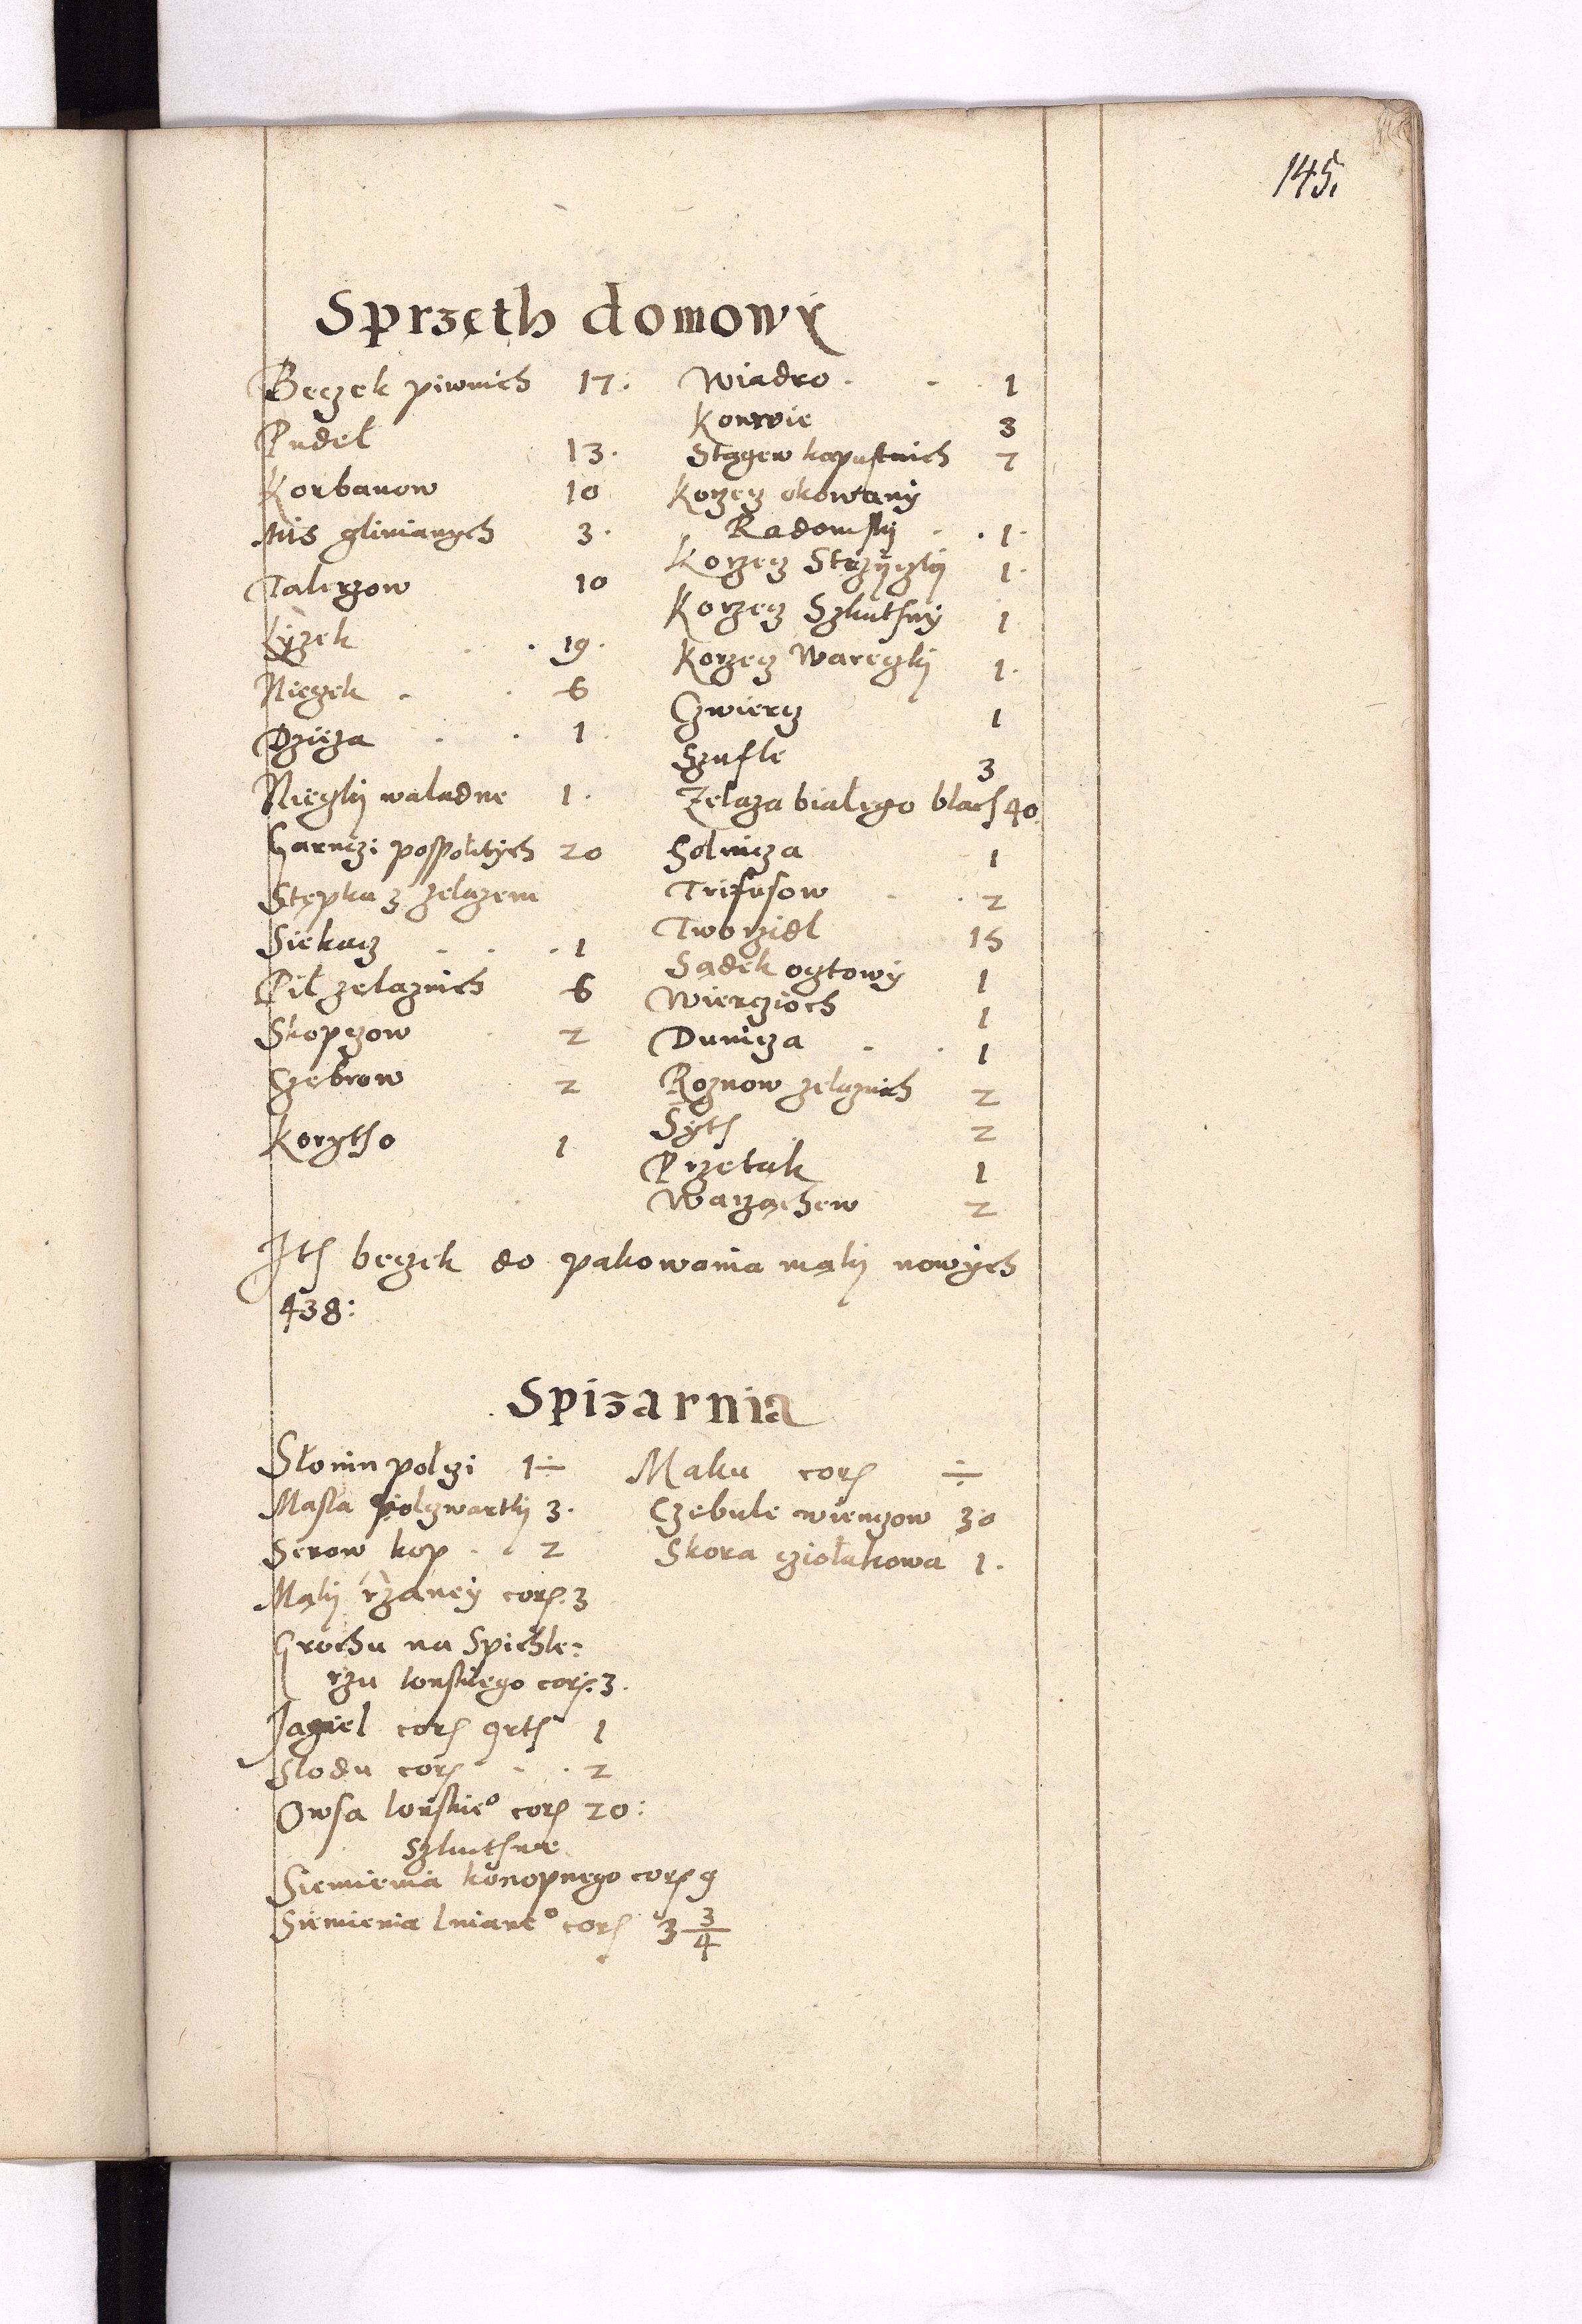 145.
Sprzęth domowy
Beczek piwnich 17.
Pudeł 13.
Korbanow 10
Mis glinianych 3.
Talerzow 10
Łyżek 19.
Nieczek 6
Dzieża 1
Niecki waladne 1.
Garnczi pospolitych 20
Stępka z żelazem
Siekacz 1
Pił zelaznich 6
Skopczow 2
Czebrow 2
Korytho 1
Wiadro 1
Konwie 3
Stągew kapustnich 7
Korzecz okowany
Radomski 1.
Korzecz Strzygły 1.
Korzecz Szkuthny 1
Korzecz Warecki 1.
Czwiercz 1
Szufle 3
Zelaza białego blach 40
Solnicza 1
Trifusow 2
Tworzidł 15
Sadek octowy 1
Wierczioch 1
Dunicza 1
Roznow zelaznich 2
Syth 2
Przetak 1
Warząchew 2
Ith beczek do pakowania mąki nowych
438:
Spizarnia
Słonin połczi 1÷
Masła połczwartki 3.
Serow kop 2
Mąki rżaney cor. 3
Grochu na Spichle:
rzu lonskiego cor. 3.
Jagieł cor qrt 1
Słodu cor 2
Owsa lonskie° cor 20:
szkuthne
Siemienia konopnego cor 9
Siemienia lniane° cor 3 3/4
Maku cor ÷
Czebule wienczow 30
Skora cziołkowa 1.